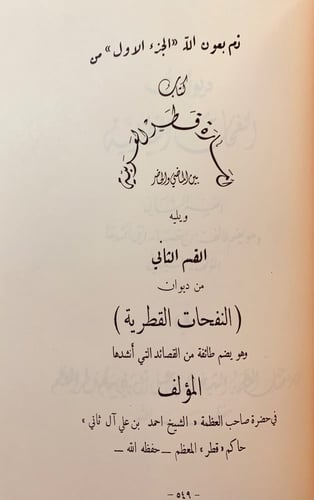 تم بعون الله «الجزء الاول» من
كتاب
إمارة قطر العربية
بين الماضي والحاضر
ويليه
القسم الثاني
من ديوان
(النفحات القطرية)
وهو يضم طائفة من القصائد التي أنشدها
المؤلف
في حضرة صاحب العظمة «الشيخ احمد بن علي آل ثاني»
حاكم «قطر» المعظم ــ حفظه الله ــ
- ٥٤٩ -